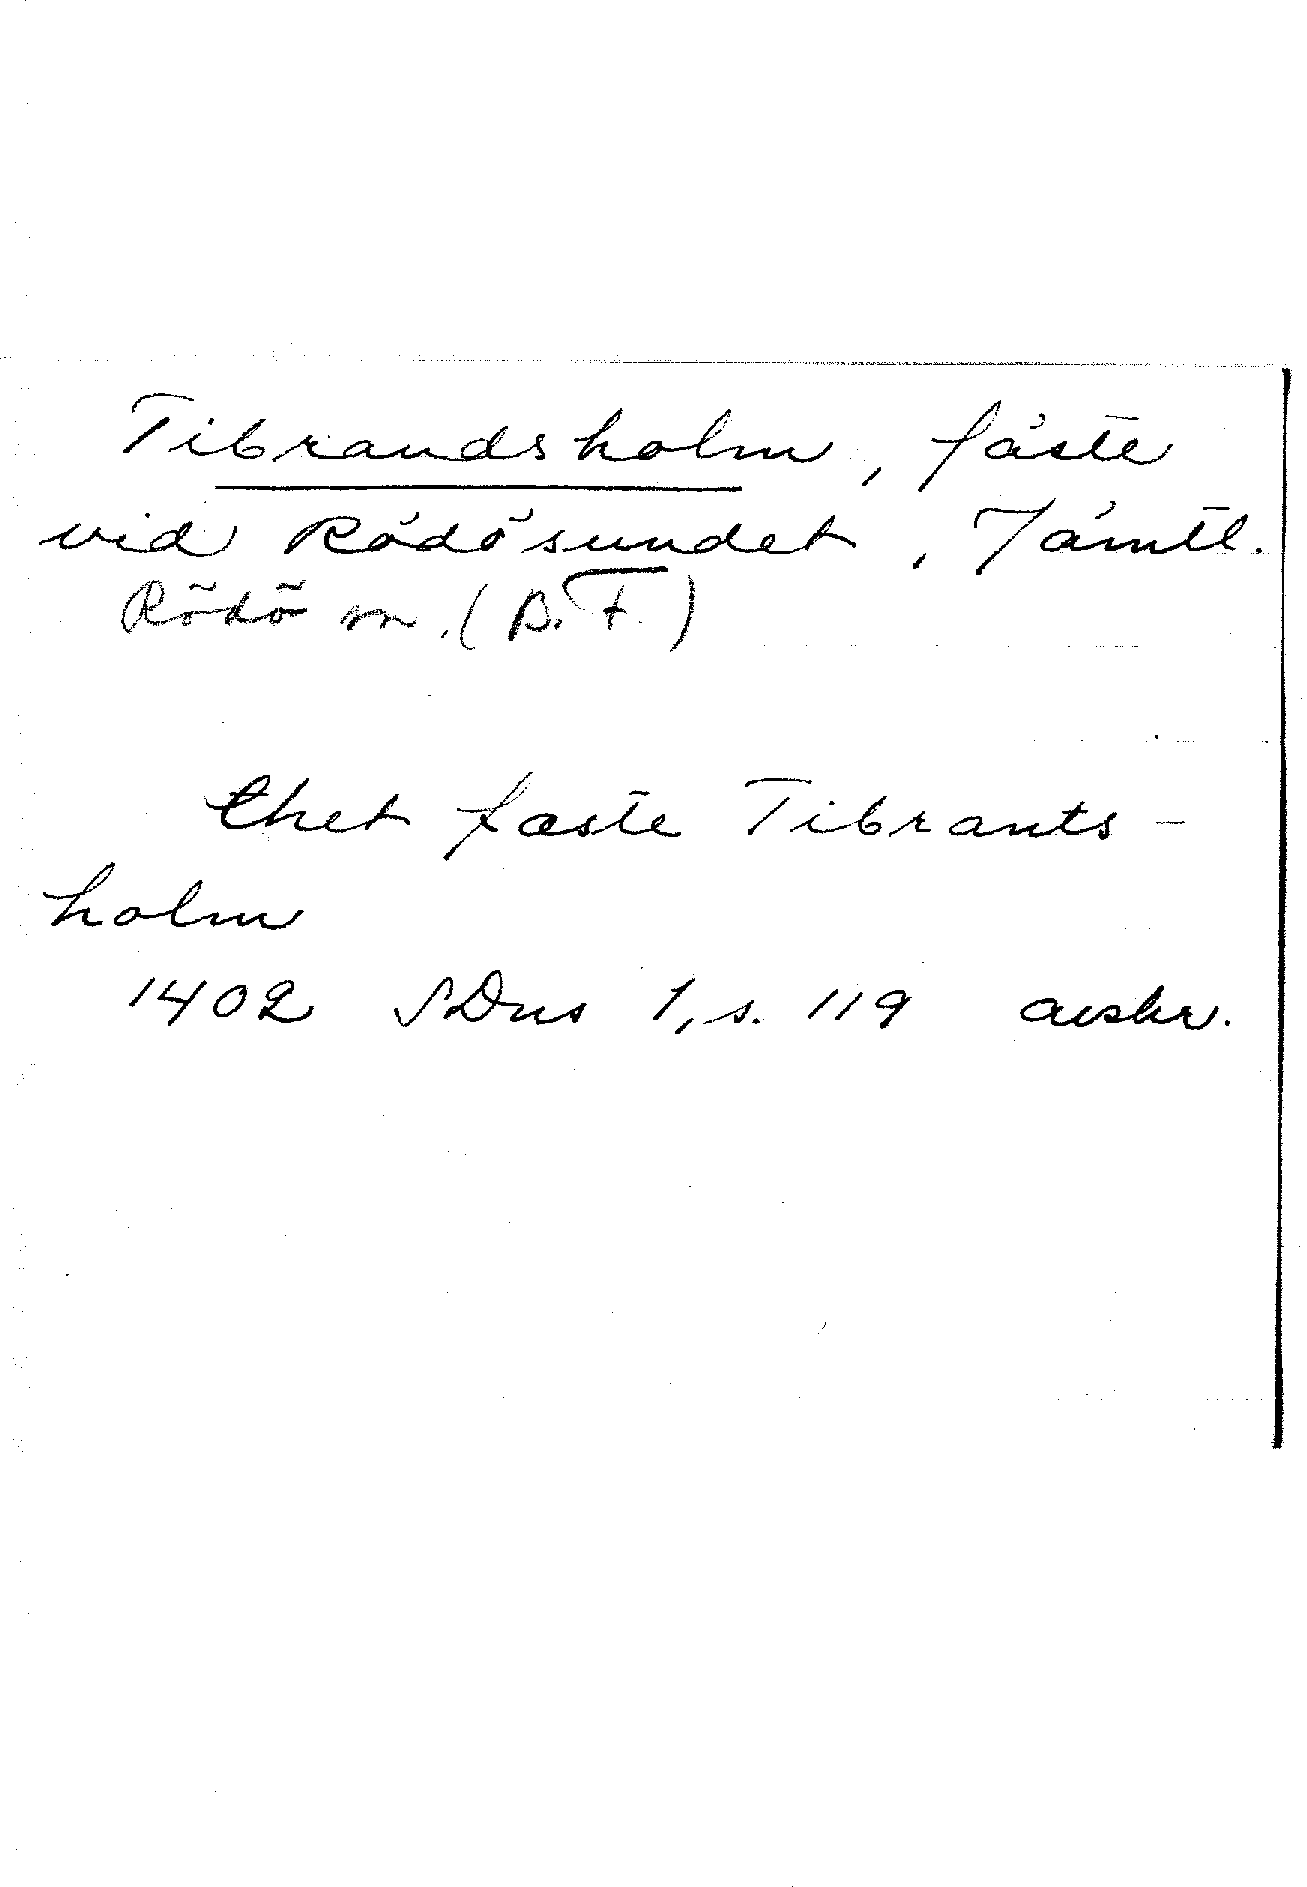 Tibrandsholm, fäste
vid Rödösundet, Jämtl.
Rödö sn. (B. F.)
thet fæste Tibrants-
holm
1402 SDns 1, s. 119 avskr.